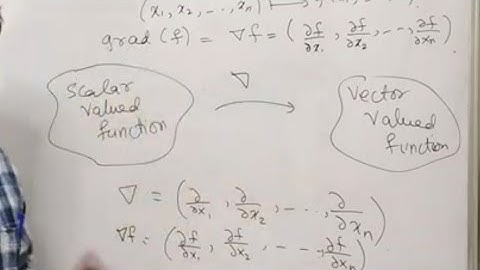 (x₁, x₂, ..., xₙ)
grad (f) = ∇f = (∂f/∂x₁, ∂f/∂x₂, ..., ∂f/∂xₙ)
∇
Scalar
valued
function
Vector
valued
function
∇ = (∂/∂x₁, ∂/∂x₂, ..., ∂/∂xₙ)
∇f = (∂f/∂x₁, ∂f/∂x₂, ..., ∂f/∂xₙ)